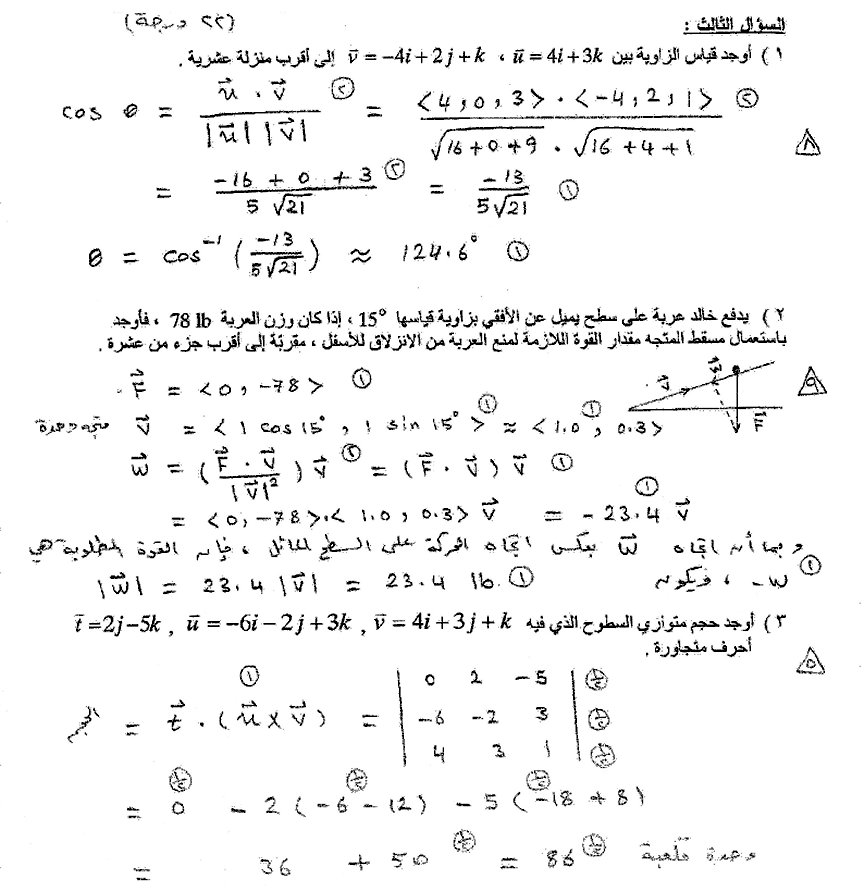 السؤال الثالث : (٢٢ درجة)
١ ) أوجد قياس الزاوية بين u̅ = 4i + 3k ، v̅ = −4i + 2j + k إلى أقرب منزلة عشرية .
cos θ = u⃗ · v⃗ / |u⃗| |v⃗| ② = <4, 0, 3> · <-4, 2, 1> / √(16+0+9) · √(16+4+1) ②
٨
= (-16 + 0 + 3) / 5√21 ② = -13 / 5√21 ①
θ = cos⁻¹ (-13 / 5√21) ≈ 124.6° ①
٢ ) يدفع خالد عربة على سطح يميل عن الأفقي بزاوية قياسها 15° ، إذا كان وزن العربة 78 lb ، فأوجد
باستعمال مسقط المتجه مقدار القوة اللازمة لمنع العربة من الانزلاق للأسفل ، مقربًة إلى أقرب جزء من عشرة .
F⃗ = <0, -78> ①
٩
v⃗ w⃗ F⃗
متجه وحدة v⃗ = <1 cos 15°, 1 sin 15°> ① ≈ <1.0, 0.3> ①
w⃗ = (F⃗ · v⃗ / |v⃗|²) v⃗ ② = (F⃗ · v⃗) v⃗ ①
= <0, -78> · <1.0, 0.3> v⃗ = -23.4 v⃗ ①
وبما أن اتجاه w⃗ بعكس اتجاه الحركة على السطح المائل ، فإن القوة المطلوبة هي
-w ، فيكون |w⃗| = 23.4 |v⃗| = 23.4 lb. ①
٣ ) أوجد حجم متوازي السطوح الذي فيه t̅ = 2j − 5k , u̅ = −6i − 2j + 3k , v̅ = 4i + 3j + k
أحرف متجاورة .
٥
الحجم = t⃗ · (u⃗ × v⃗) ① = | 0 2 -5 | ½
| -6 -2 3 | ½
| 4 3 1 | ½
= 0 ½ - 2 (-6 - 12) ½ - 5 (-18 + 8) ½
= 36 + 50 ½ = 86 ½ وحدة مكعبة